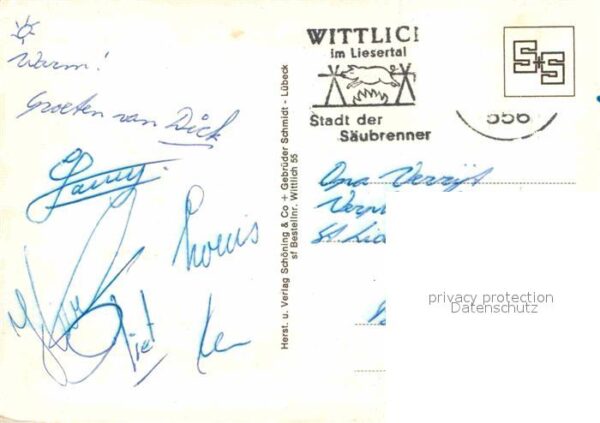 Warm!
Groeten van Dick
Louis
Piet
Ken
Herst. u. Verlag Schöning & Co + Gebrüder Schmidt - Lübeck
sf Bestellnr. Wittlich 55
WITTLICH
im Liesertal
Stadt der
Säubrenner
S+S
556
Opa Verrijt
privacy protection
Datenschutz